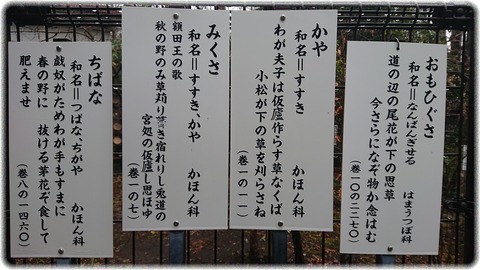 おもひぐさ
和名＝なんばんぎせる　はまうつぼ科
道の辺の尾花が下の思草
今さらになぞ物か念はむ
（巻一〇の二二七〇）
かや
和名＝すすき　かほん科
わが夫子は仮廬作らす草なくば
小松が下の草を刈らさね
（巻一の一一）
みくさ
和名＝すすき、かや　かほん科
額田王の歌
秋の野のみ草苅り葺き宿れりし兎道の
宮処の仮廬し思ほゆ
（巻一の七）
ちばな
和名＝つばな、ちがや　かほん科
戯奴がためわが手もすまに
春の野に　抜ける茅花ぞ食して
肥えませ
（巻八の一四六〇）